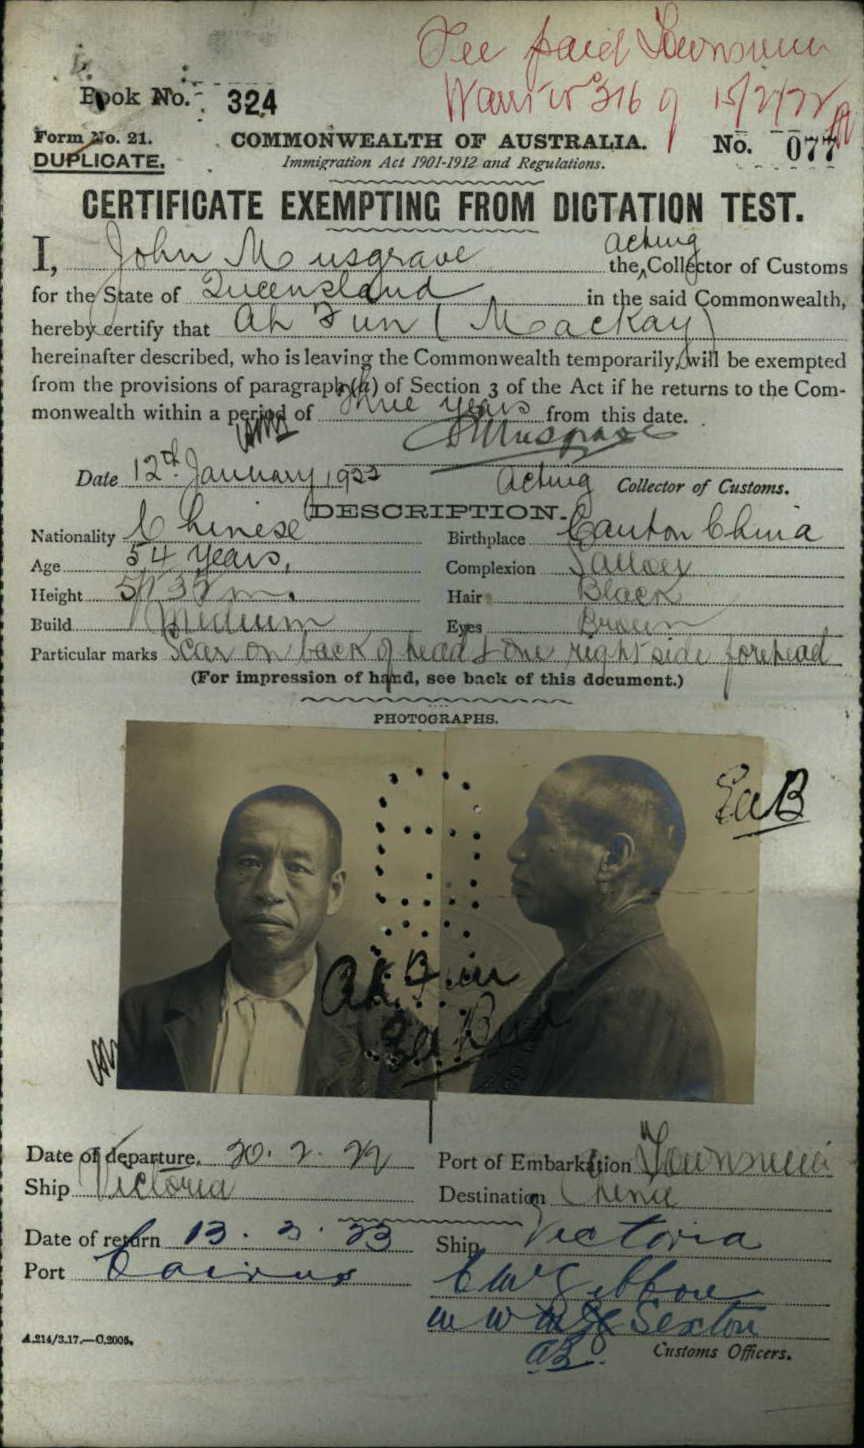 Fee paid Townsville
Warr No 316 of 15/2/22
Book No. 324
Form No. 21. COMMONWEALTH OF AUSTRALIA. No. 077
DUPLICATE. Immigration Act 1901-1912 and Regulations.
CERTIFICATE EXEMPTING FROM DICTATION TEST.
I, John Musgrave the acting Collector of Customs
for the State of Queensland in the said Commonwealth,
hereby certify that Ah Fun (Mackay)
hereinafter described, who is leaving the Commonwealth temporarily, will be exempted
from the provisions of paragraph (a) of Section 3 of the Act if he returns to the Com-
monwealth within a period of three years from this date.
Musgrave
Date 12th January 1922 Acting Collector of Customs.
DESCRIPTION.
Nationality Chinese Birthplace Canton China
Age 54 years, Complexion Sallow
Height Hair Black
Build Medium Eyes Brown
Particular marks Scar on back of head & one right side forehead
(For impression of hand, see back of this document.)
PHOTOGRAPHS.
Ah Fun
Date of departure, 20. 2. 22 Port of Embarkation Townsville
Ship Victoria Destination China
Date of return 13. 3. 23 Ship Victoria
Port Cairns
Sexton
A.214/3.17.—C.2005. Customs Officers.